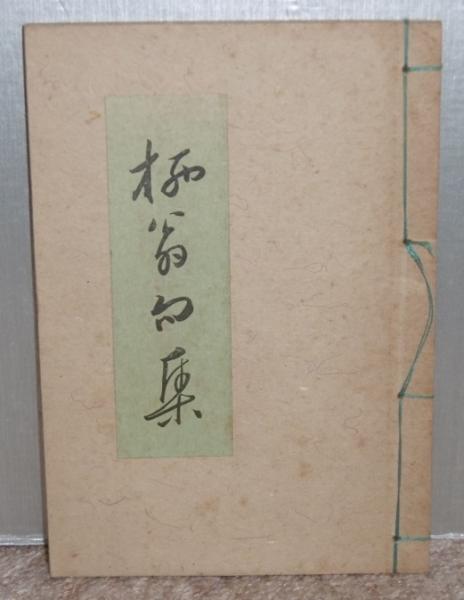 柳翁句集